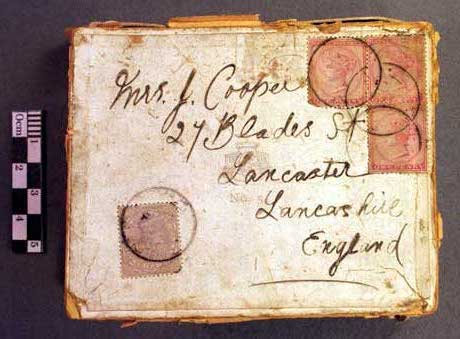 Mrs. J. Cooper
27 Blades St
Lancaster
Lancashire
England
ONE PENNY
No.
0cm
1
2
3
4
5